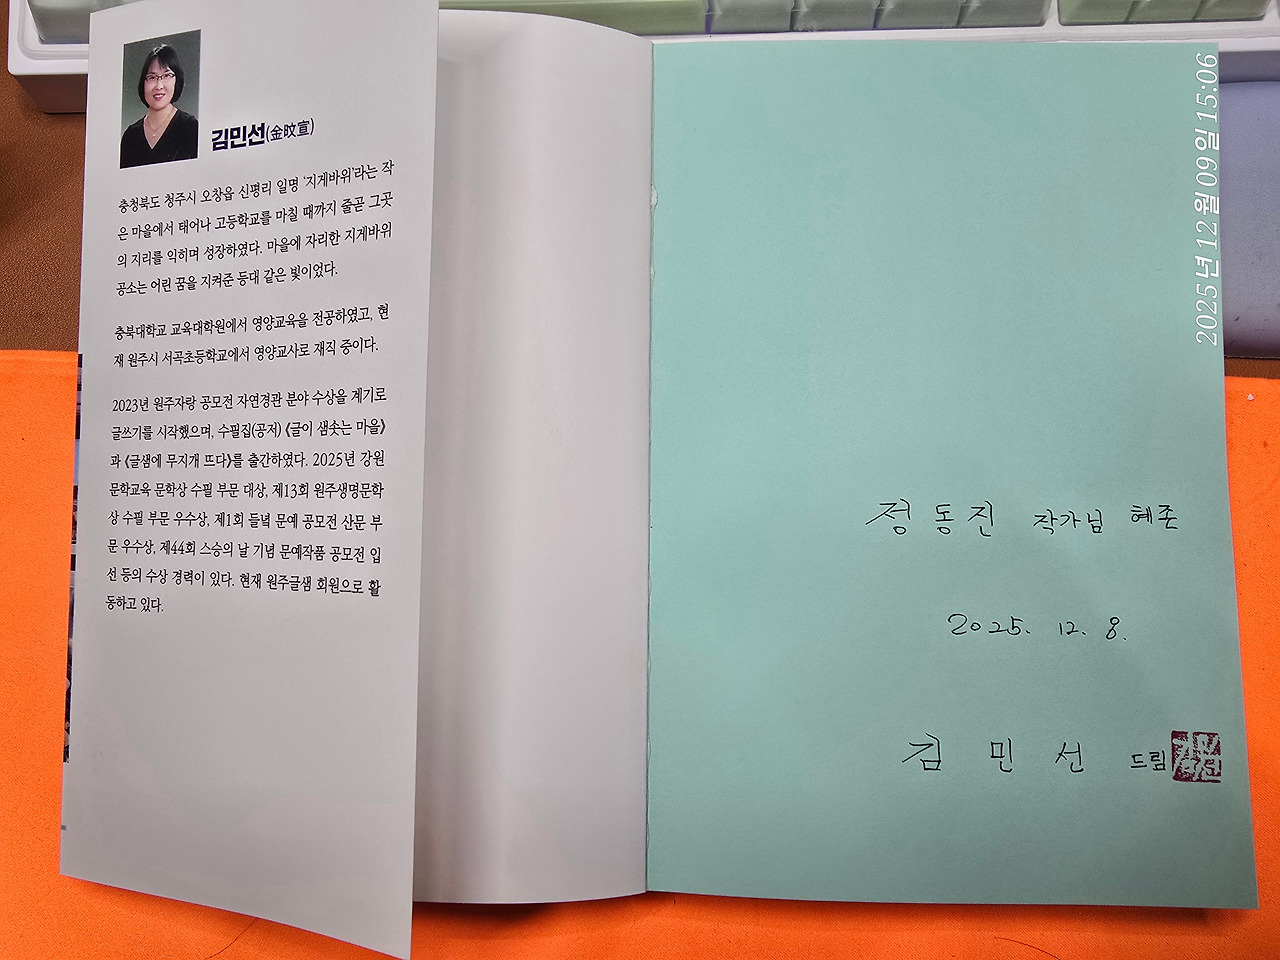 김민선(金旼宣)
충청북도 청주시 오창읍 신평리 일명 '지게바위'라는 작
은 마을에서 태어나 고등학교를 마칠 때까지 줄곧 그곳
의 지리를 익히며 성장하였다. 마을에 자리한 지게바위
공소는 어린 꿈을 지켜준 등대 같은 빛이었다.
충북대학교 교육대학원에서 영양교육을 전공하였고, 현
재 원주시 서곡초등학교에서 영양교사로 재직 중이다.
2023년 원주자랑 공모전 자연경관 분야 수상을 계기로
글쓰기를 시작했으며, 수필집(공저) 《글이 샘솟는 마을》
과 《글샘에 무지개 뜨다》를 출간하였다. 2025년 강원
문학교육 문학상 수필 부문 대상, 제13회 원주생명문학
상 수필 부문 우수상, 제1회 들녘 문예 공모전 산문 부
문 우수상, 제44회 스승의 날 기념 문예작품 공모전 입
선 등의 수상 경력이 있다. 현재 원주글샘 회원으로 활
동하고 있다.
정동진 작가님 혜존
2025. 12. 8.
김민선 드림
2025년 12월 09일 15:06